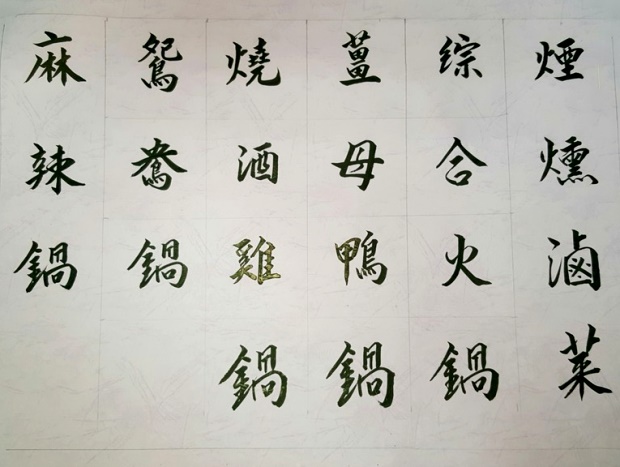 煙燻滷菜
综合火鍋
薑母鴨鍋
燒酒雞鍋
鴛鴦鍋
麻辣鍋